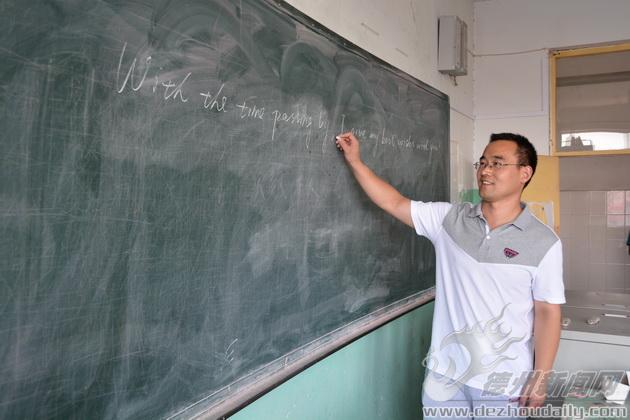 With the time passing by I give my best wishes
德州新闻网
www.dezhoudaily.com